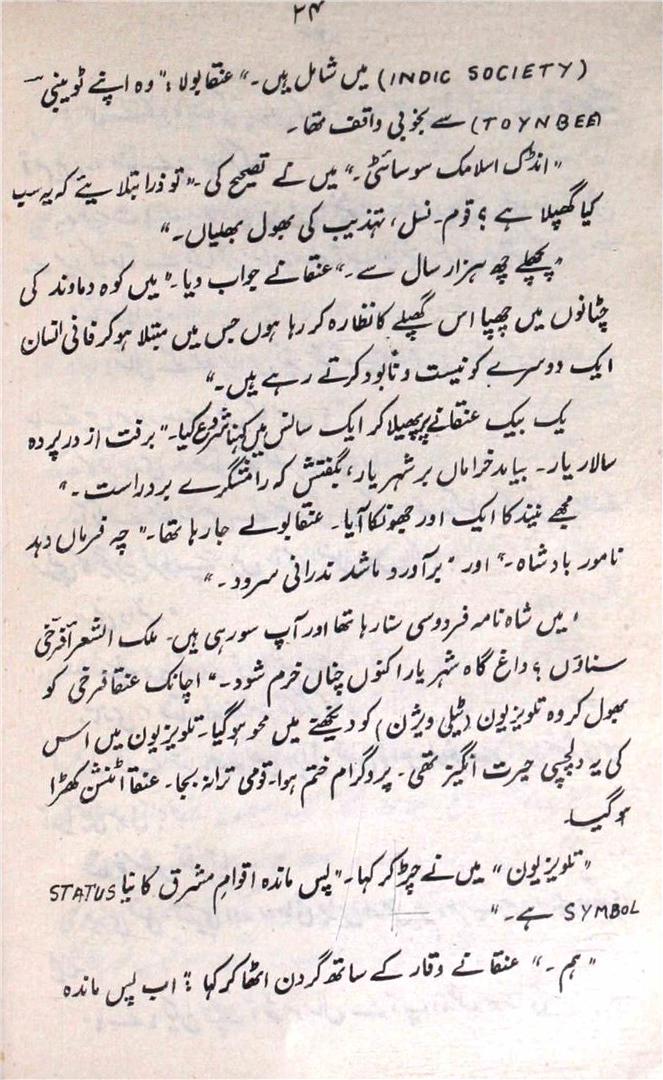 ۲۴
(INDIC SOCIETY) میں شامل ہیں۔“ عنقا بولا: ”وہ اپنے ٹوینبی
(TOYNBEE) سے بخوبی واقف تھا۔
”انڈک اسلامک سوسائٹی۔“ میں نے تصحیح کی۔ ”تو ذرا بتلایئے کہ یہ سب
کیا گھپلا ہے؟ قوم۔ نسل، تہذیب کی بھول بھلیاں۔“
”پچھلے چھ ہزار سال سے۔“ عنقا نے جواب دیا۔ ”میں کوہ دماوند کی
چٹانوں میں چھپا اس گھپلے کا نظارہ کر رہا ہوں جس میں مبتلا ہوکر فانی انسان
ایک دوسرے کو نیست و نابود کرتے رہے ہیں۔“
یک بیک عنقا نے پر پھیلا کر ایک سانس میں کہنا شروع کیا۔ ”برفت از در پردہ
سالار یار۔ بیامد خراماں بر شہریار، بگفتش کہ رامشگرے بردراست۔“
مجھے نیند کا ایک اور جھونکا آیا۔ عنقا بولے جا رہا تھا۔ ”چہ فرماں دہد
نامور بادشاہ۔“ اور ”برآورد ماشد ندرانی سرود۔“
”میں شاہ نامہ فردوسی سنا رہا تھا اور آپ سو رہی ہیں۔ ملک الشعرا فرخی
سناؤں؟ داغ گاہ شہریار اکنوں چناں خرم شود۔“ اچانک عنقا فرخی کو
بھول کر وہ تلویزیون (ٹیلی ویژن) کو دیکھنے میں محو ہوگیا۔ تلویزیون میں اس
کی یہ دلچسپی حیرت انگیز تھی۔ پروگرام ختم ہوا۔ قومی ترانہ بجا۔ عنقا اٹنشن کھڑا
ہوگیا۔
”تلویزیون“ میں نے چڑ کر کہا۔ ”پس ماندہ اقوامِ مشرق کا نیا STATUS
SYMBOL ہے۔“
”ہم۔“ عنقا نے وقار کے ساتھ گردن اٹھا کر کہا: ”اب پس ماندہ